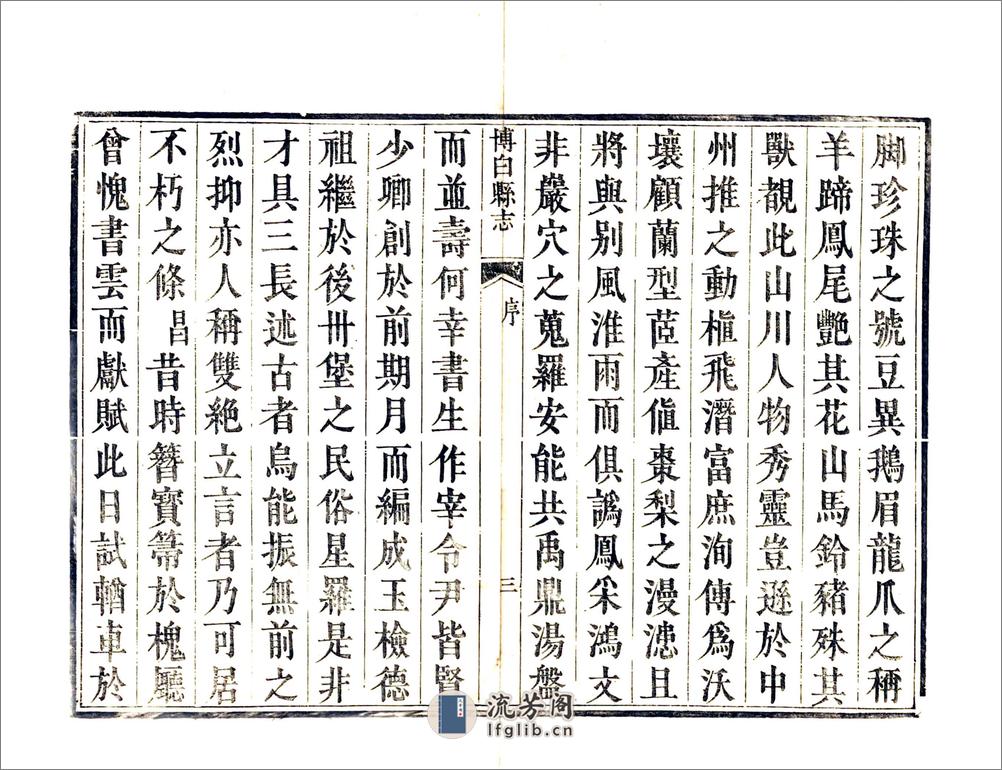 脚珍珠之號豆異鵝眉龍爪之稱
羊蹄鳳尾艷其花山馬鈴豬殊其
獸覩此山川人物秀靈豈遜於中
州推之動植飛潛富庶洵傳爲沃
壤顧蘭型茝產傕棗梨之漫漶且
將與別風淮雨而俱譌鳳采鴻文
非巖穴之蒐羅安能共禹鼎湯盤
博白縣志
序
三
而並壽何幸書生作宰令尹皆賢
少卿創於前期月而編成玉檢德
祖繼於後卌堡之民俗星羅是非
才具三長述古者烏能振無前之
烈抑亦人稱雙絶立言者乃可居
不朽之條昌昔時簪寳筭於槐廳
曾愧書雲而獻賦此日試輶車於
流芳阁
lfglib.cn